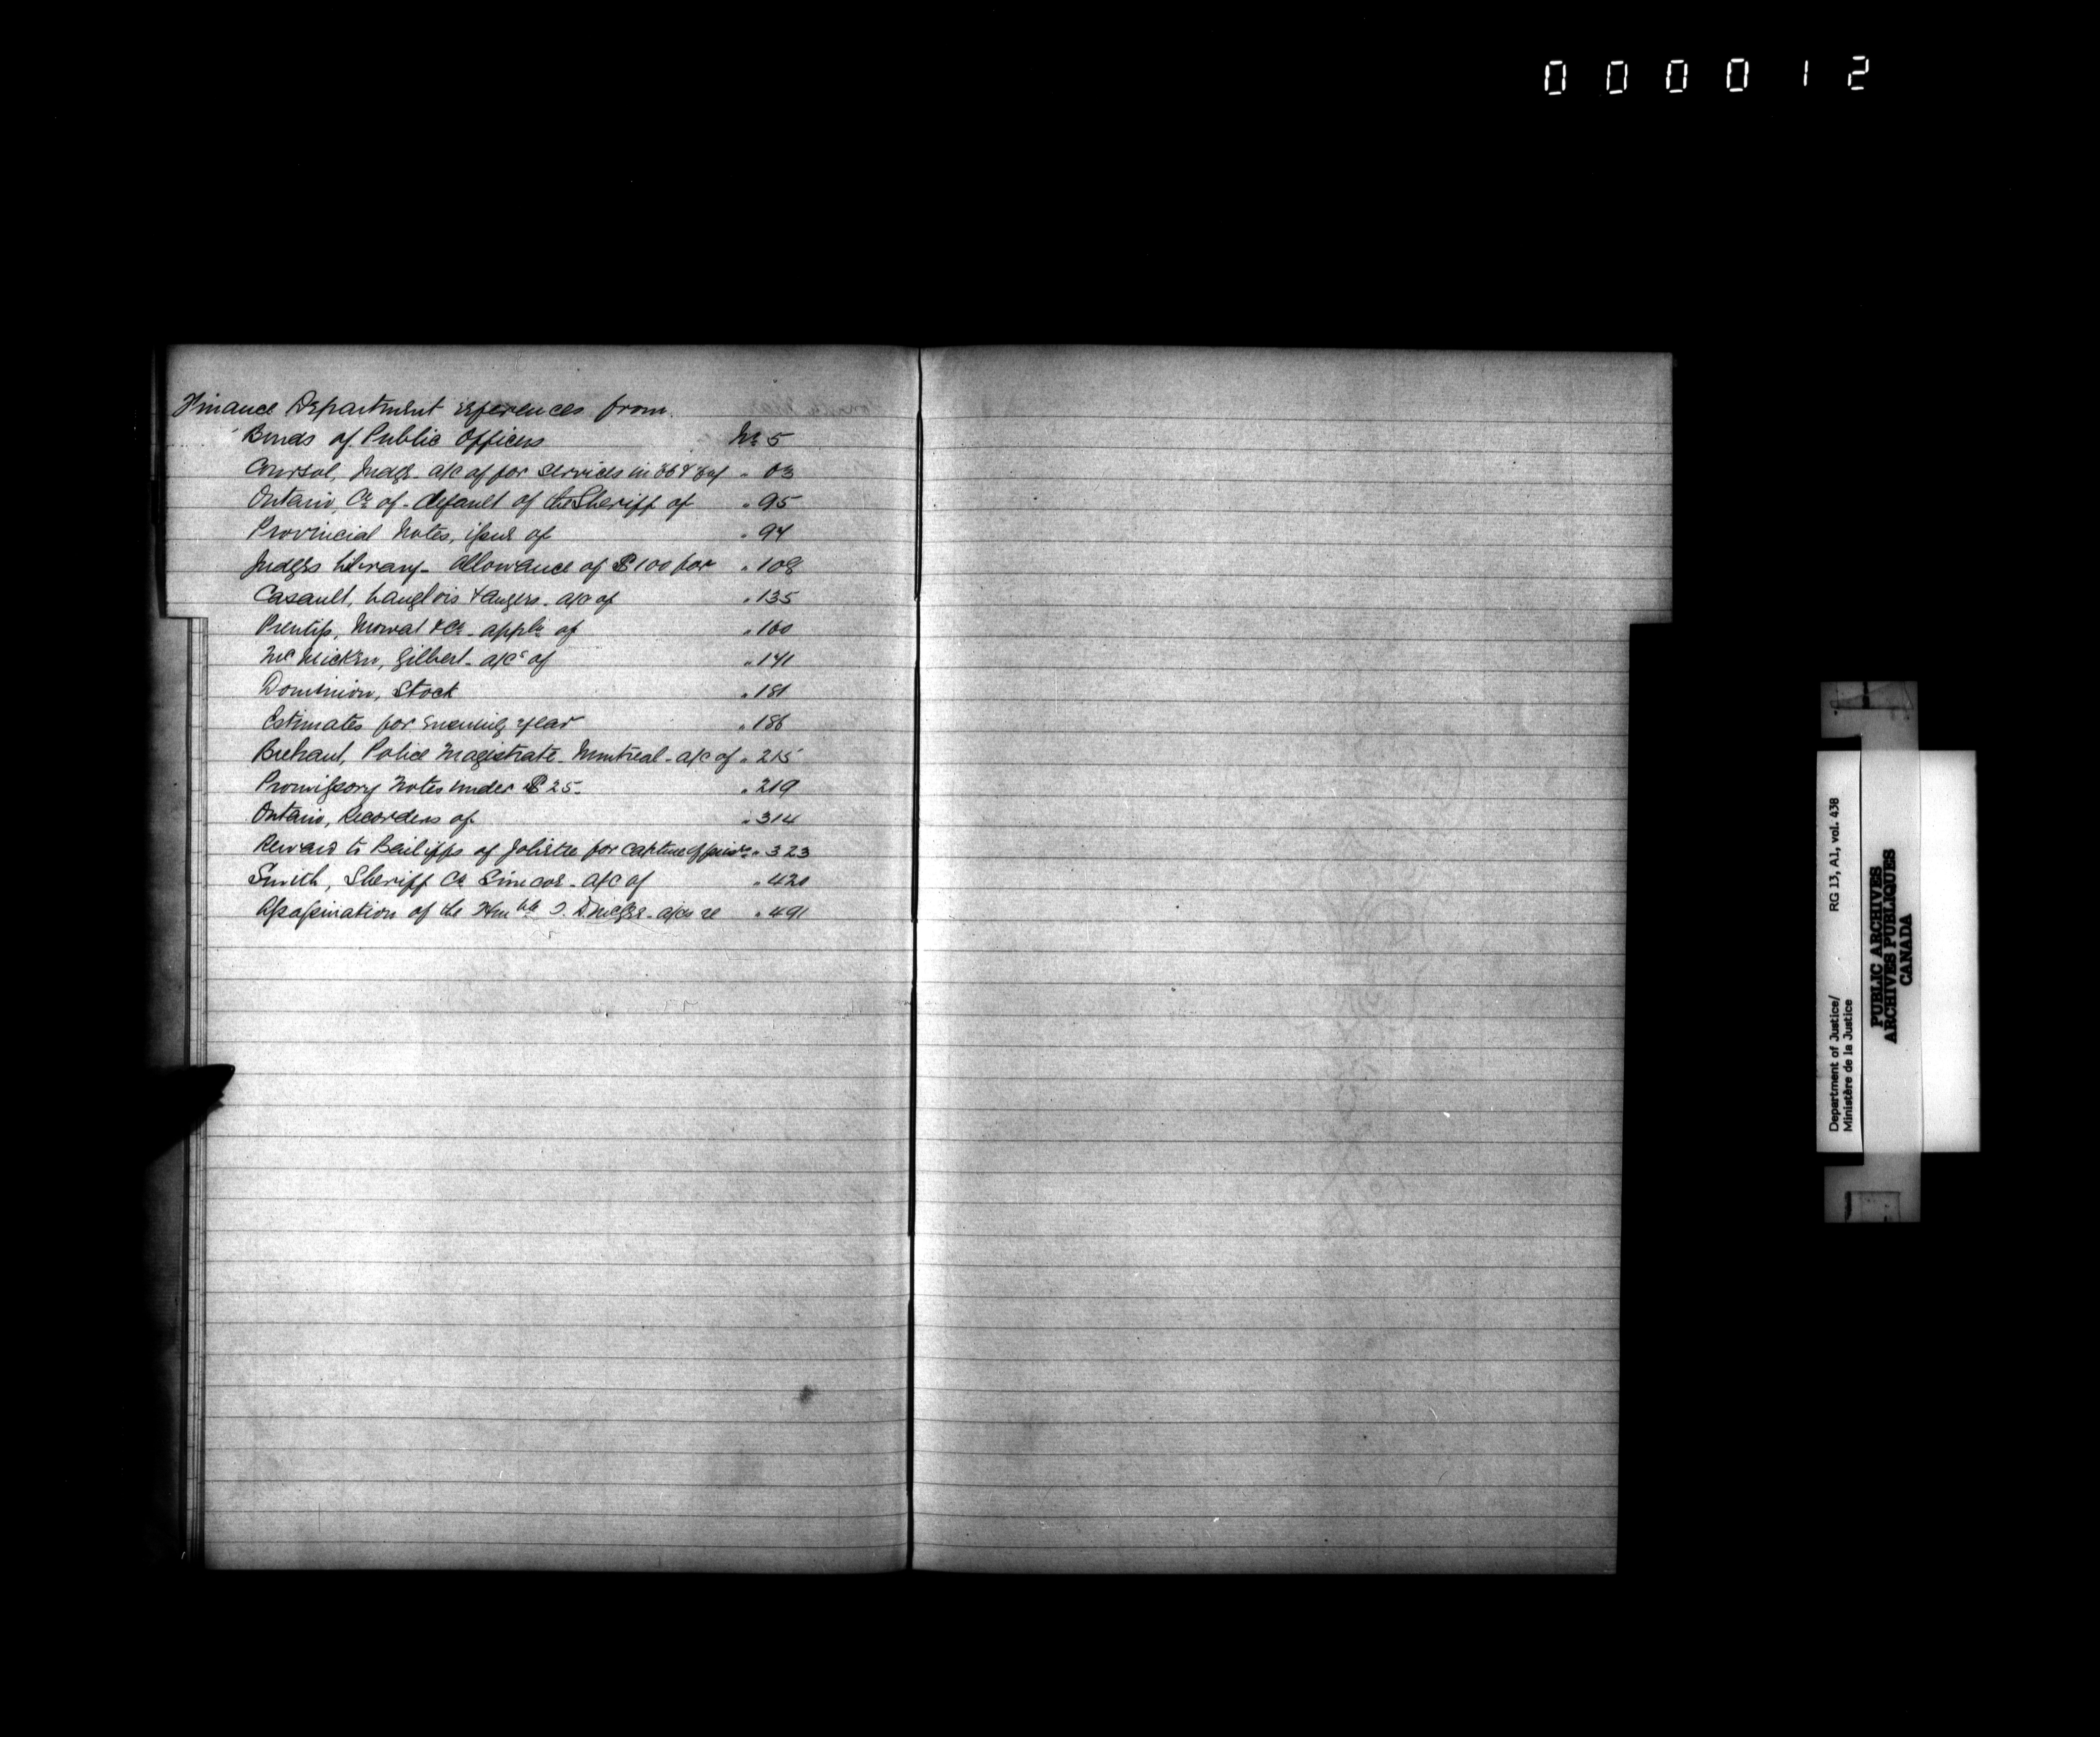 000012
Finance Department references from.
Bonds of Public Officers No 5
Coursol, Judge - a/c of for services in 66 & " 63
Ontario, Co. of - default of the Sheriff of " 95
Provincial Notes, issue of " 94
Judges Library - Allowance of $100 for " 108
Casault, Langlois & Angers - a/c of " 135
Prentiss, Mowat & Co. - appln of " 160
McMicken, Gilbert - a/cs of " 141
Dominion, Stock " 181
Estimates for ensuing year " 186
Brehaut, Police Magistrate - Montreal - a/c of " 215
Promissory Notes under $25 - " 219
Ontario, Recorders of " 314
Reward to Bailiffs of Joliette for capture of " 323
Smith, Sheriff Co. Simcoe - a/c of " 420
Assassination of the Honble T. D. McGee - a/cs re " 491
Department of Justice/
Ministère de la Justice
RG 13, A1, vol. 438
PUBLIC ARCHIVES
ARCHIVES PUBLIQUES
CANADA